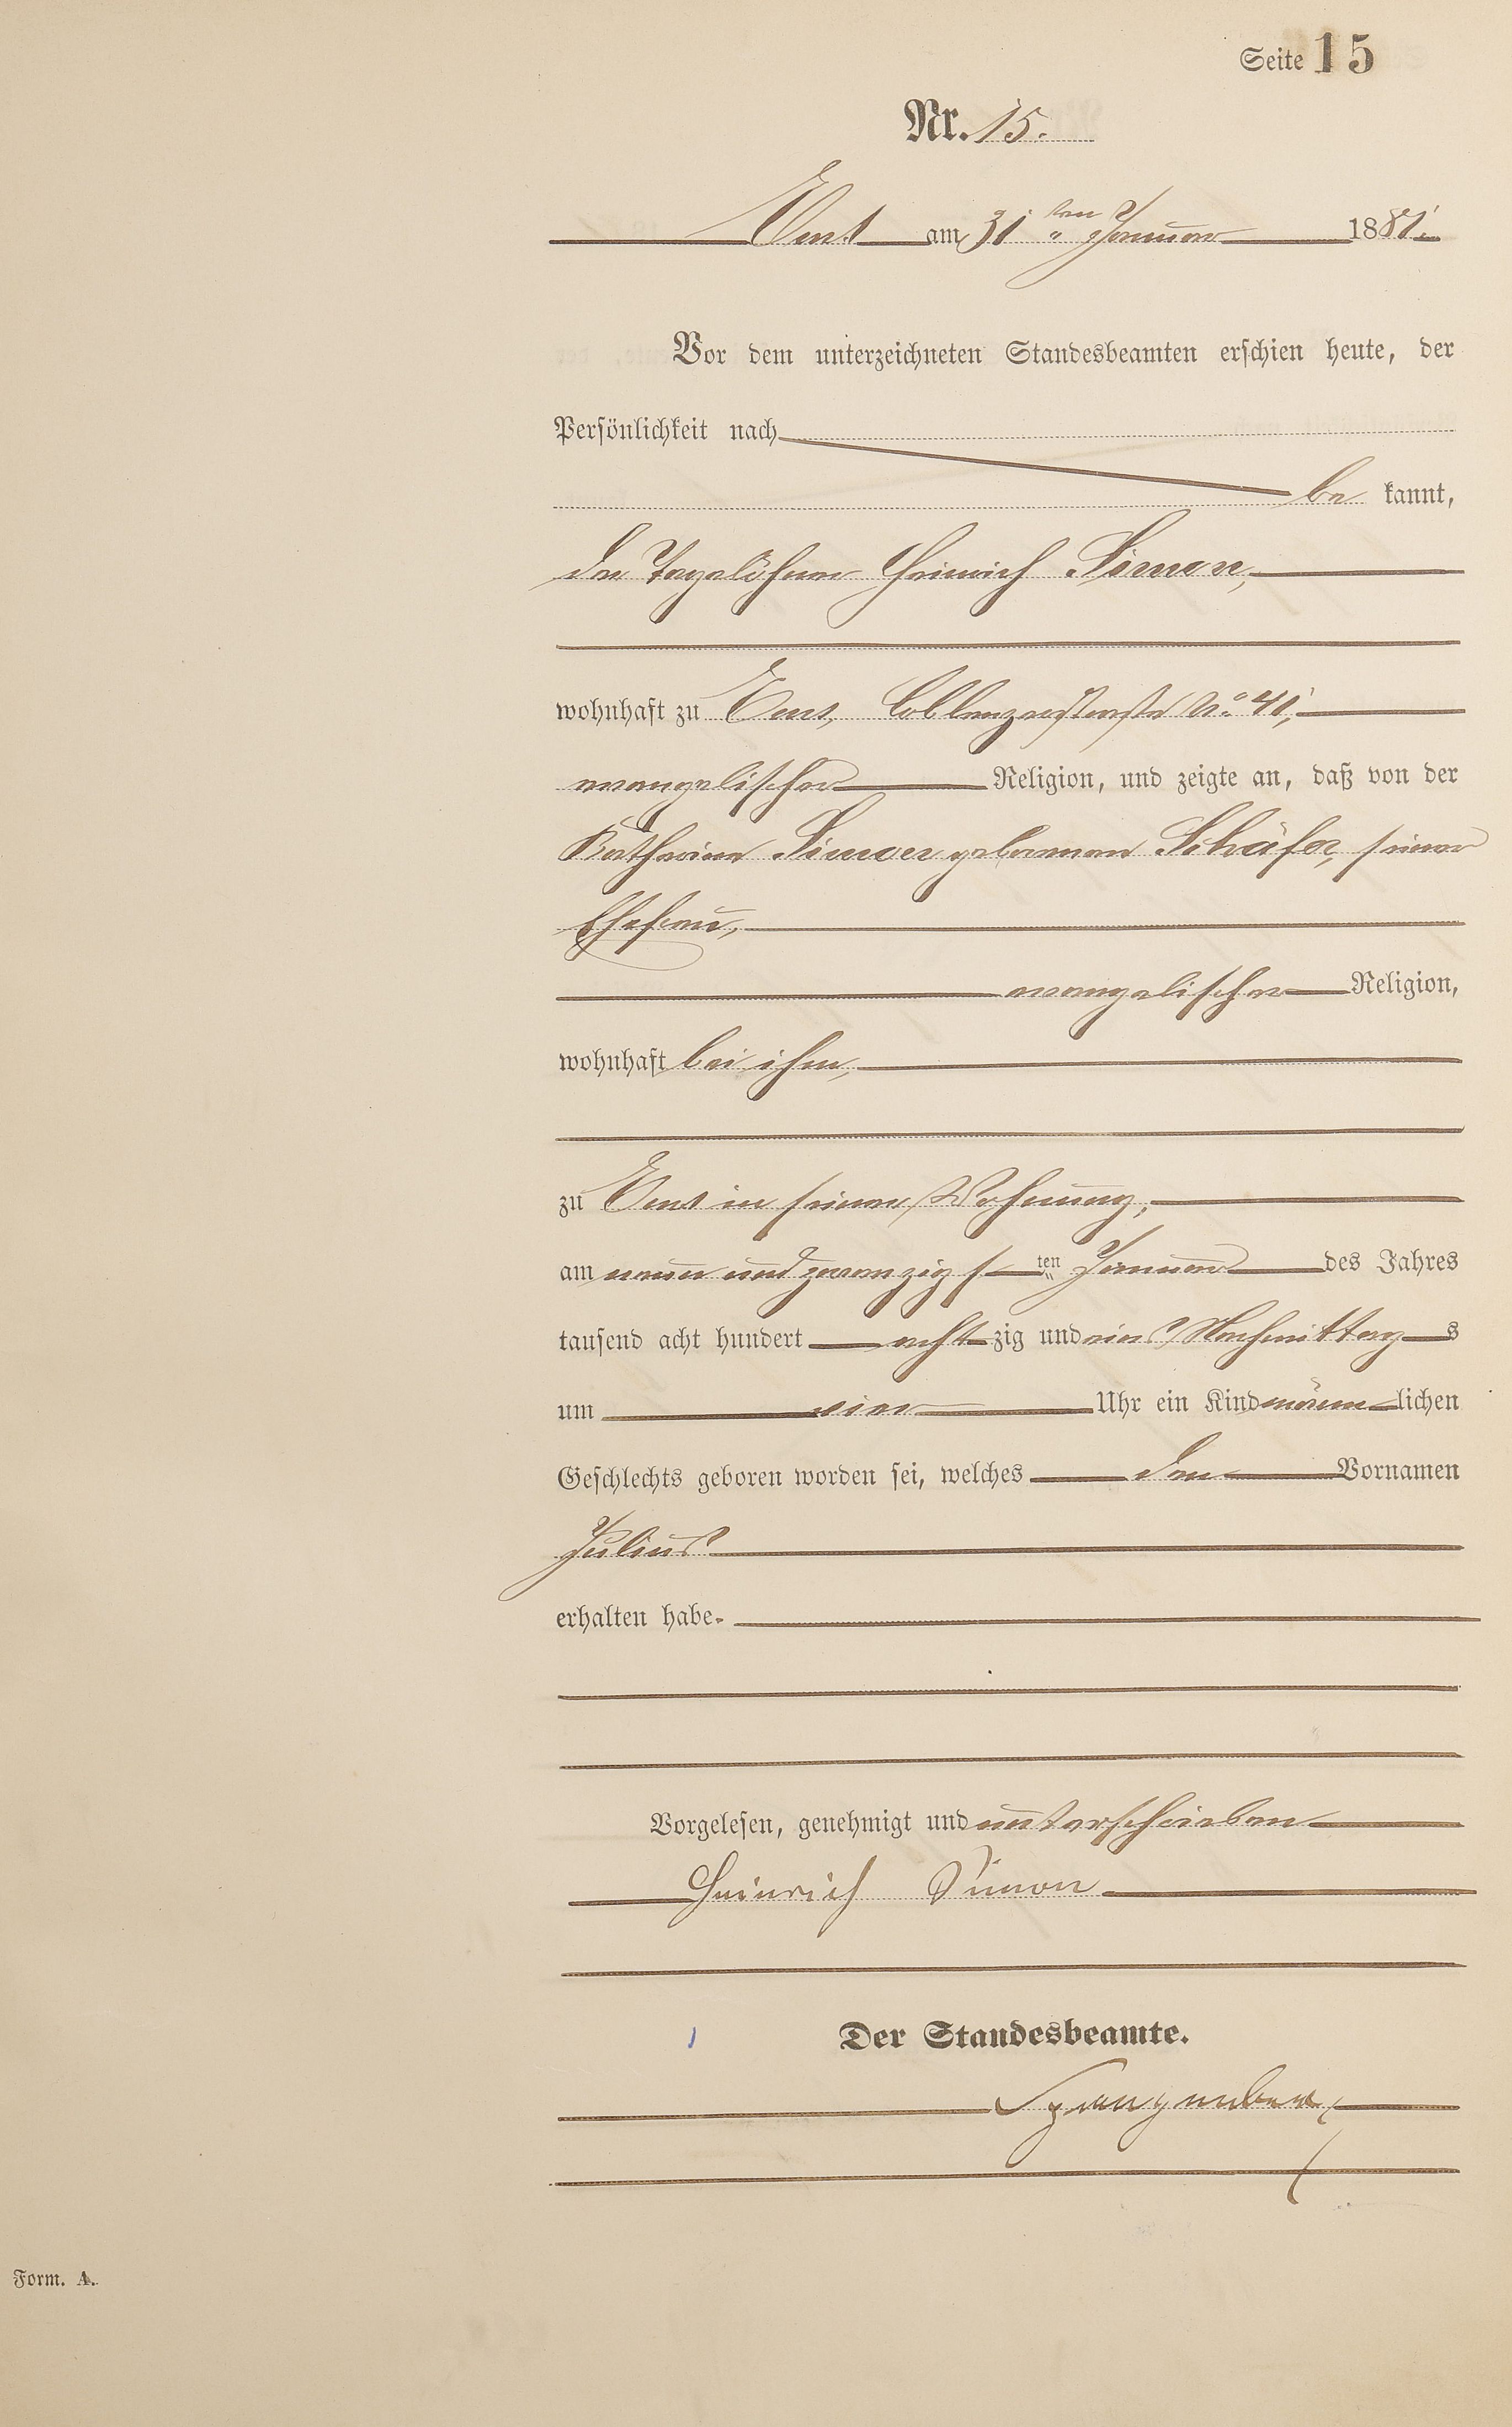 Seite 15
Nr. 15.
Ems am 31ten Januar 1881.
Vor dem unterzeichneten Standesbeamten erschien heute, der
Persönlichkeit nach
be kannt,
der Tagelöhner Heinrich Simon,
wohnhaft zu Ems, Coblenzerstraße No 41,
evangelischer Religion, und zeigte an, daß von der
Katharina Simon geborenen Schäfer, seiner
Ehefrau,
evangelischer Religion,
wohnhaft bei ihm,
zu Ems in seiner Wohnung,
am neun und zwanzigsten Januar des Jahres
tausend acht hundert achtzig und eins Nachmittags
um vier Uhr ein Kind männlichen
Geschlechts geboren worden sei, welches den Vornamen
Julius
erhalten habe.
Vorgelesen, genehmigt und unterschrieben
Heinrich Simon
Der Standesbeamte.
Spangenberg
Form. A.